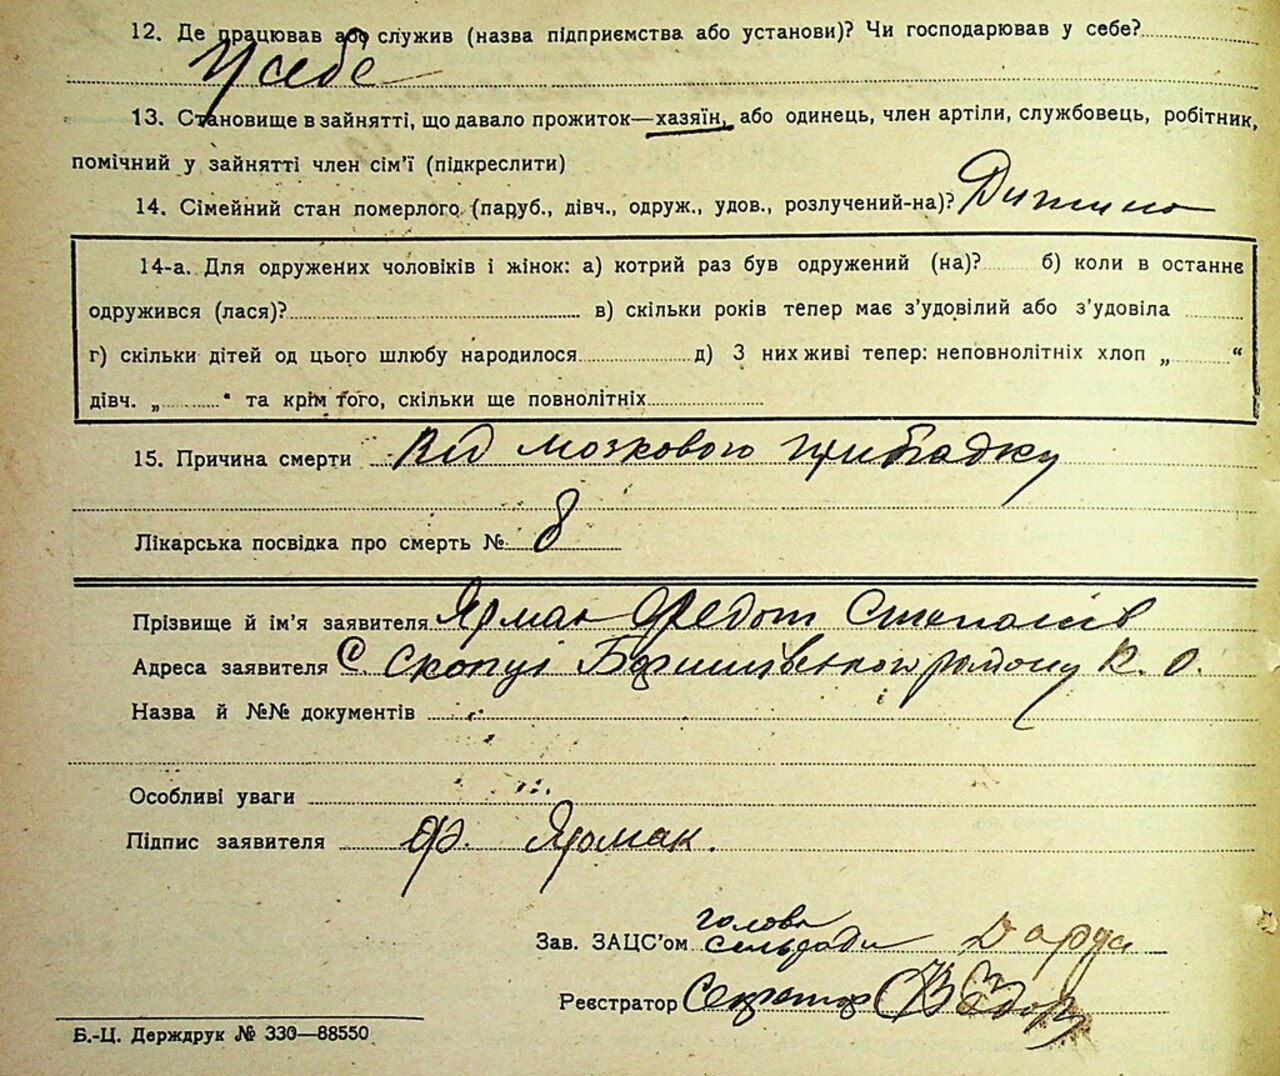 12. Де працював або служив (назва підприємства або установи)? Чи господарював у себе?
У себе
13. Становище в зайнятті, що давало прожиток—хазяїн, або одинець, член артіли, службовець, робітник,
помічний у зайнятті член сім’ї (підкреслити)
14. Сімейний стан померлого (паруб., дівч., одруж., удов., розлучений-на)? Дитина
14-а. Для одружених чоловіків і жінок: а) котрий раз був одружений (на)? б) коли в останнє
одружився (лася)? в) скільки років тепер має з’удовілий або з’удовіла
г) скільки дітей од цього шлюбу народилося д) З них живі тепер: неповнолітніх хлоп „ “
дівч. „ “ та крім того, скільки ще повнолітніх
15. Причина смерти Від мозкового припадку
Лікарська посвідка про смерть № 8
Прізвище й ім’я заявителя Ярмак Федот Степанів
Адреса заявителя С. Скопці району К. О.
Назва й №№ документів
Особливі уваги
Підпис заявителя Ф. Ярмак.
голова
Зав. ЗАЦС’ом сельради
Реєстратор Секретар
Б.-Ц. Держдрук № 330—88550